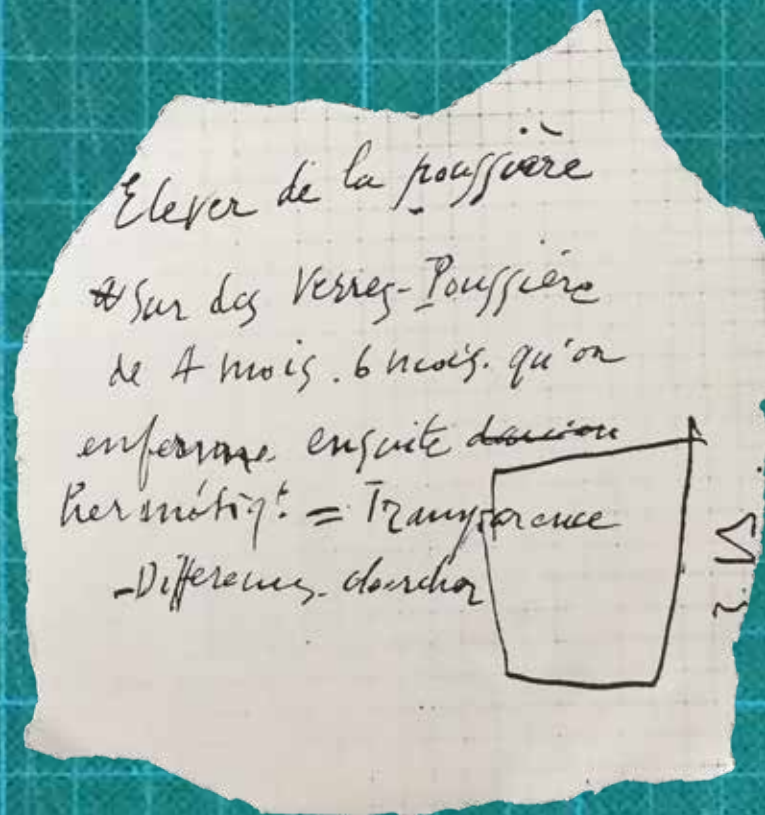 Elever de la poussière
Sur des Verres-Poussière
de 4 mois. 6 mois. qu'on
enferme ensuite
hermétiqt = Transparence
-Differences. chercher